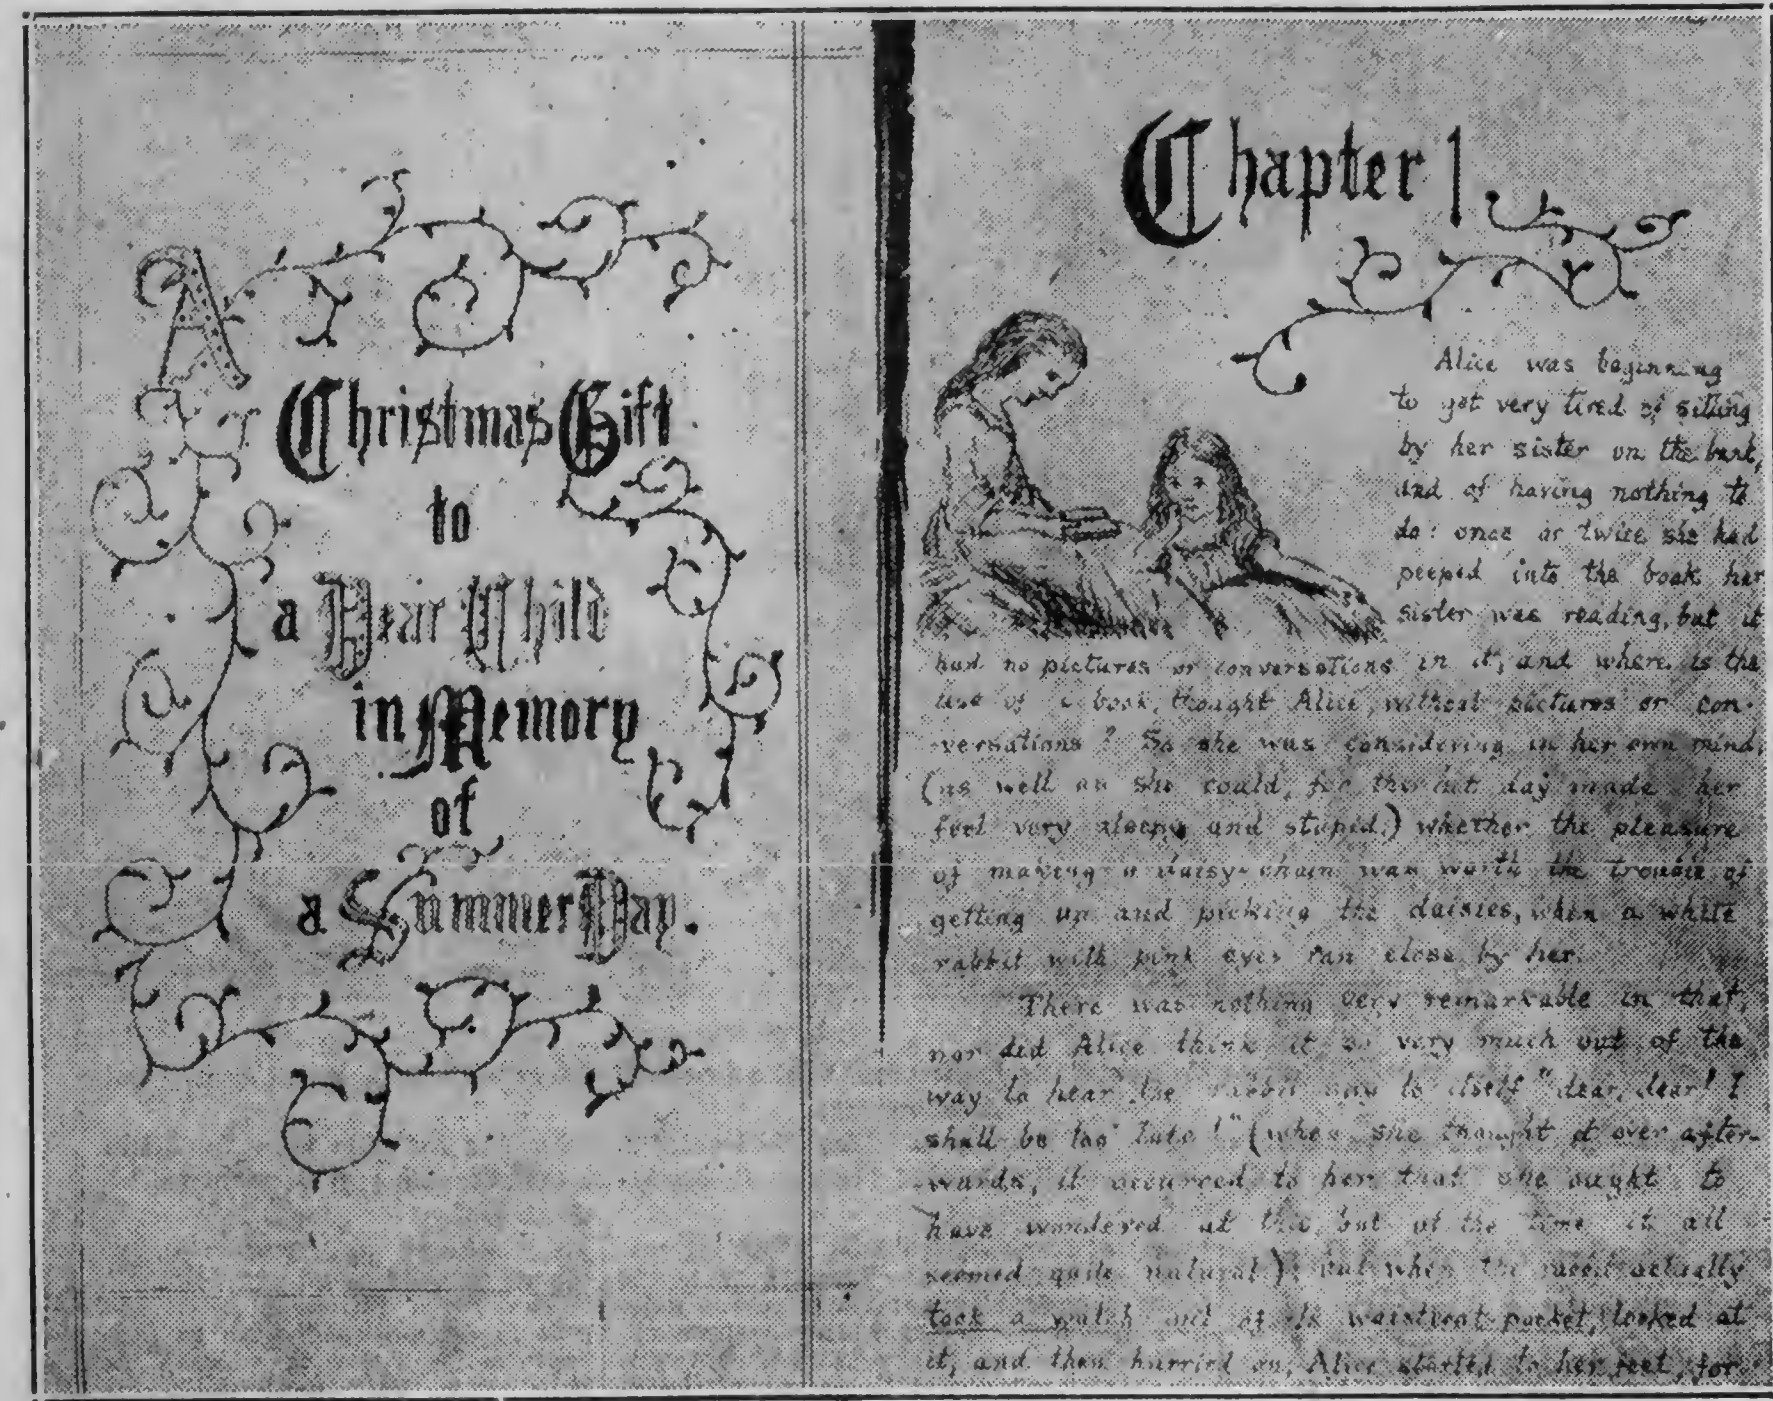 A
Christmas Gift
to
a Dear Child
in Memory
of
a Summer Day.
Chapter 1
Alice was beginning
to get very tired of sitting
by her sister on the bank,
and of having nothing to
do: once or twice she had
peeped into the book her
sister was reading, but it
had no pictures or conversations in it, and where is the
use of a book, thought Alice, without pictures or con-
-versations? So she was considering in her own mind,
(as well as she could, for the hot day made her
feel very sleepy and stupid,) whether the pleasure
of making a daisy-chain was worth the trouble of
getting up and picking the daisies, when a white
rabbit with pink eyes ran close by her.
There was nothing very remarkable in that,
nor did Alice think it so very much out of the
way to hear the rabbit say to itself "dear, dear! I
shall be too late!" (when she thought it over after-
-wards, it occurred to her that she ought to
have wondered at this, but at the time it all
seemed quite natural); but when the rabbit actually
took a watch out of its waistcoat-pocket, looked at
it, and then hurried on, Alice started to her feet, for